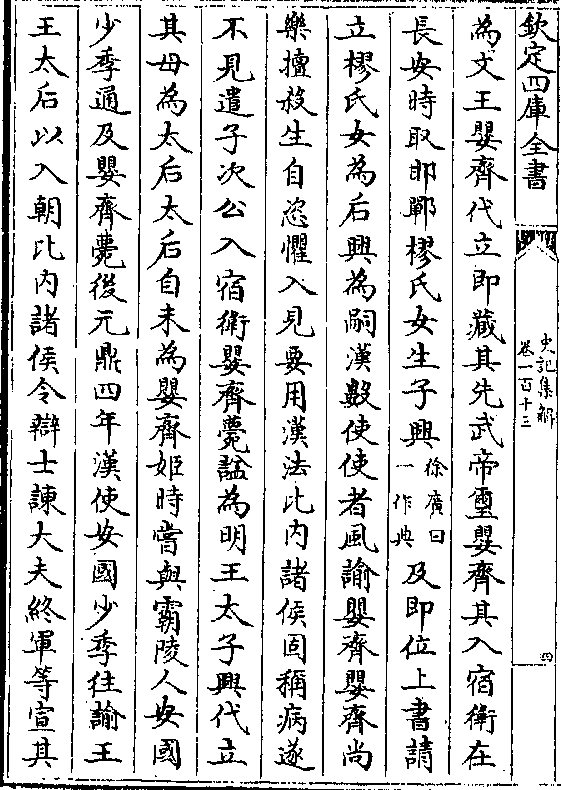 欽定四庫全書
史記集解
卷一百十三
四
為文王嬰齊代立即藏其先武帝璽嬰齊其入宿衛在
長安時取邯鄲樛氏女生子興徐廣曰一作典及即位上書請
立樛氏女為后興為嗣漢數使使者風諭嬰齊嬰齊尚
樂擅殺生自恣懼入見要用漢法比內諸侯固稱病遂
不見遣子次公入宿衛嬰齊薨謚為明王太子興代立
其母為太后太后自未為嬰齊姬時嘗與霸陵人安國
少季通及嬰齊薨後元鼎四年漢使安國少季往諭王
王太后以入朝比內諸侯令辯士諫大夫終軍等宣其